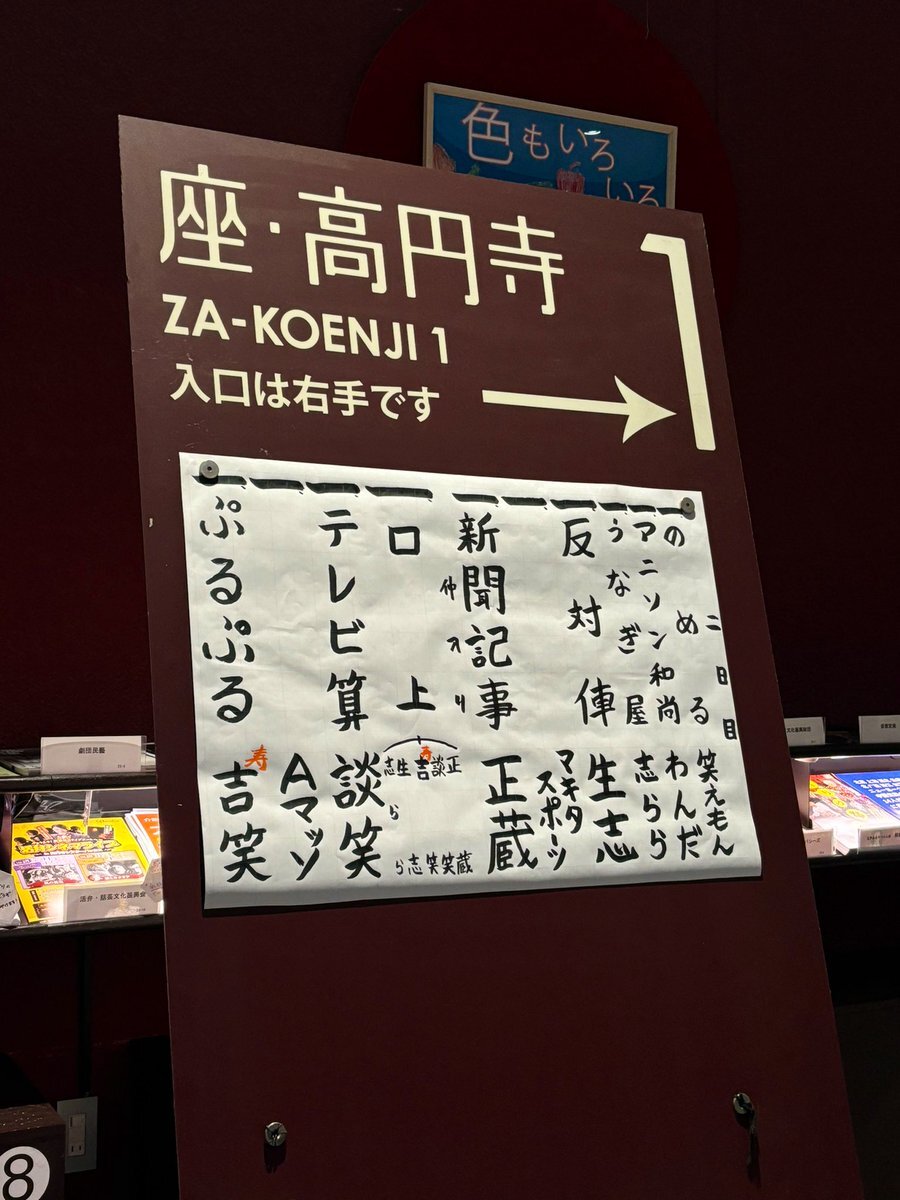 色もいろ
いろ
座・高円寺
1
ZA-KOENJI 1
入口は右手です
二日目
一のめる 笑えもん
一アニソン和尚 わんだ
一うなぎ屋 志らら
一反対俥 生志
一 マキタスポーツ
一新聞記事 正蔵
仲入り
一口上
正蔵
談笑
寿
吉笑
生志
志らら
一テレビ算 談笑
一 Aマッソ
一ぷるぷる 寿 吉笑
劇団民藝
活弁・話芸文化振興会
8